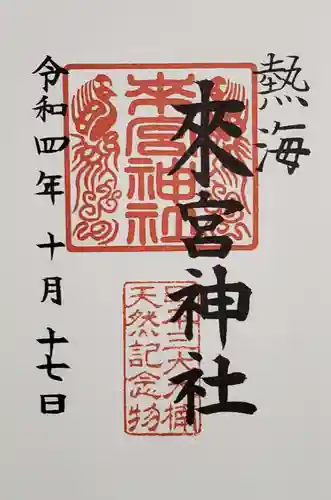 熱海
來宮神社
來宮神社
天然記念物
令和四年十月十七日